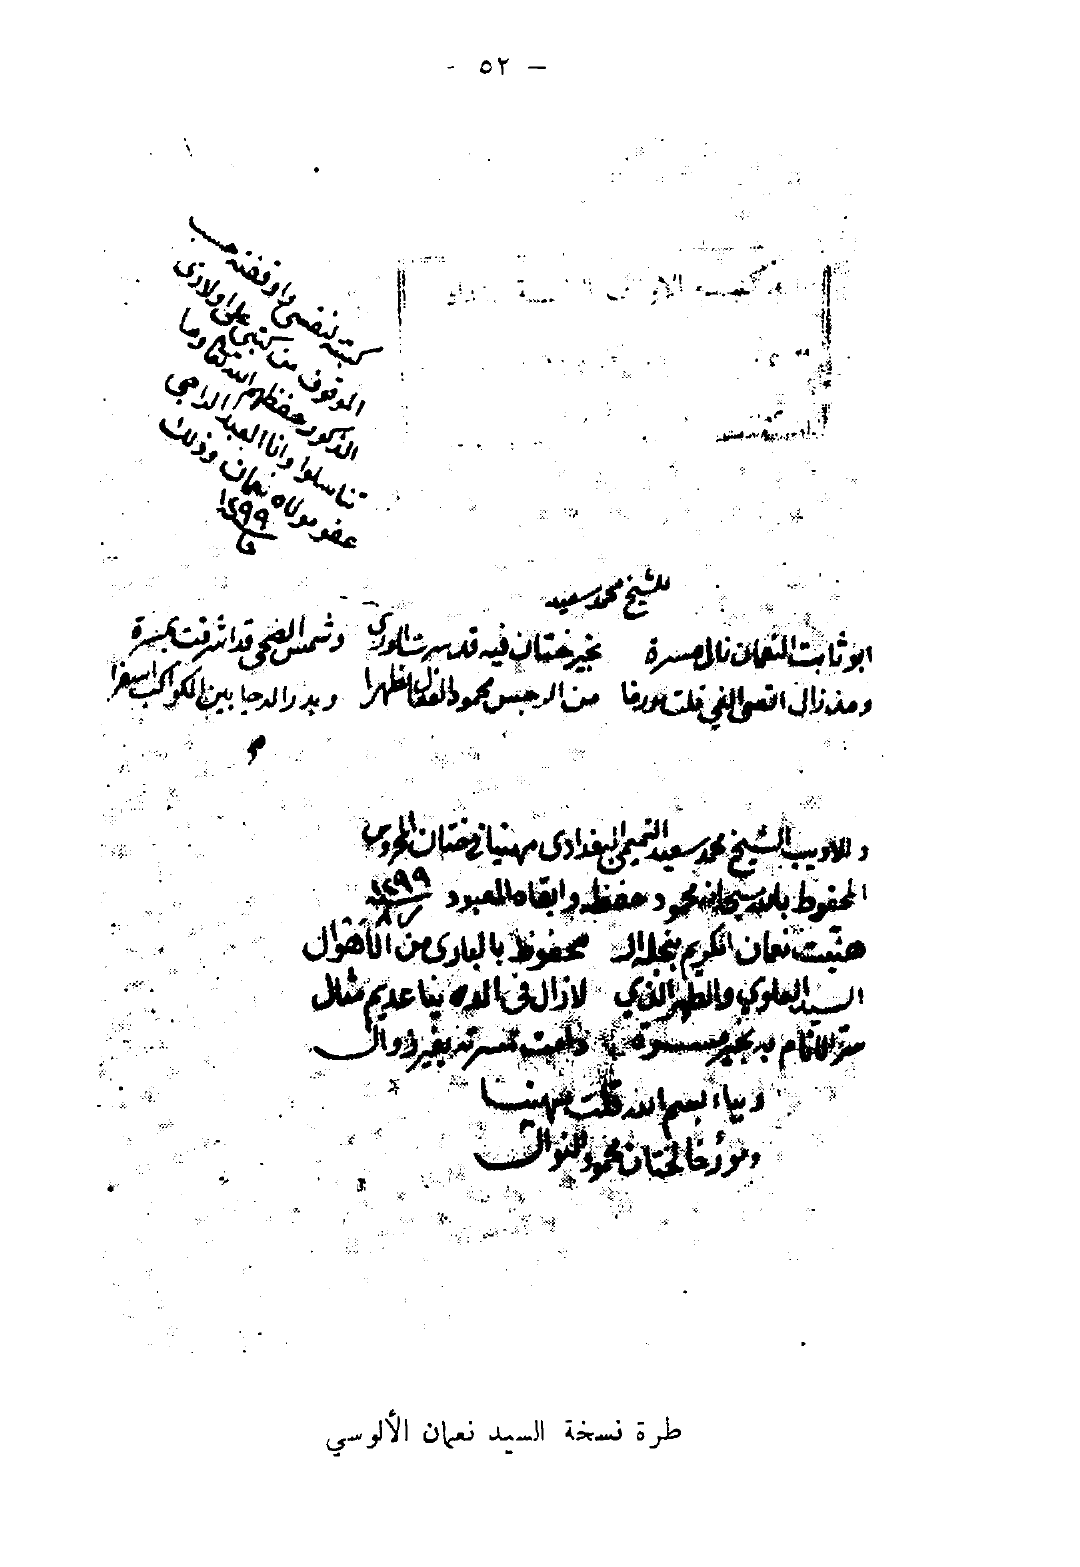 - ٥٢ -
كتبته لنفسي واوقفته حسب
الموقوف من كتبي على اولادي
الذكور حفظهم الله تعالى وما
تناسلوا وانا العبد الراجي
عفو مولاه نعمان وذلك
١٢٩٩
للشيخ محمد سعيد
ابو ثابت النعمان نال مسرة بخير ختان فيه قد سرت الورى وشمس الضحى قد اشرقت بمسرة
ومذ زال اقصى الغي قلت مورخا من الرجس محمود الفعال تطهرا وبدر الدجا بين الكواكب اسفرا
م
وللاديب الشيخ محمد سعيد التميمي البغدادي مهنيا في ختان المحروس
المحفوظ بالله سبحانه محمود حفظه وابقاه المعبود ١٢٩٩
هنيت نعمان الكريم بنجله الـ محفوظ بالباري من الأهوال
السيد العلوي والطهر الذي لا زال في الدنيا عديم مثال
سر الانام به بخير مسرة دامت مسرته بغير زوال
وبباء بسم الله قلت مهنيا
ومؤرخا لختان محمود النوال
طرة نسخة السيد نعمان الألوسي